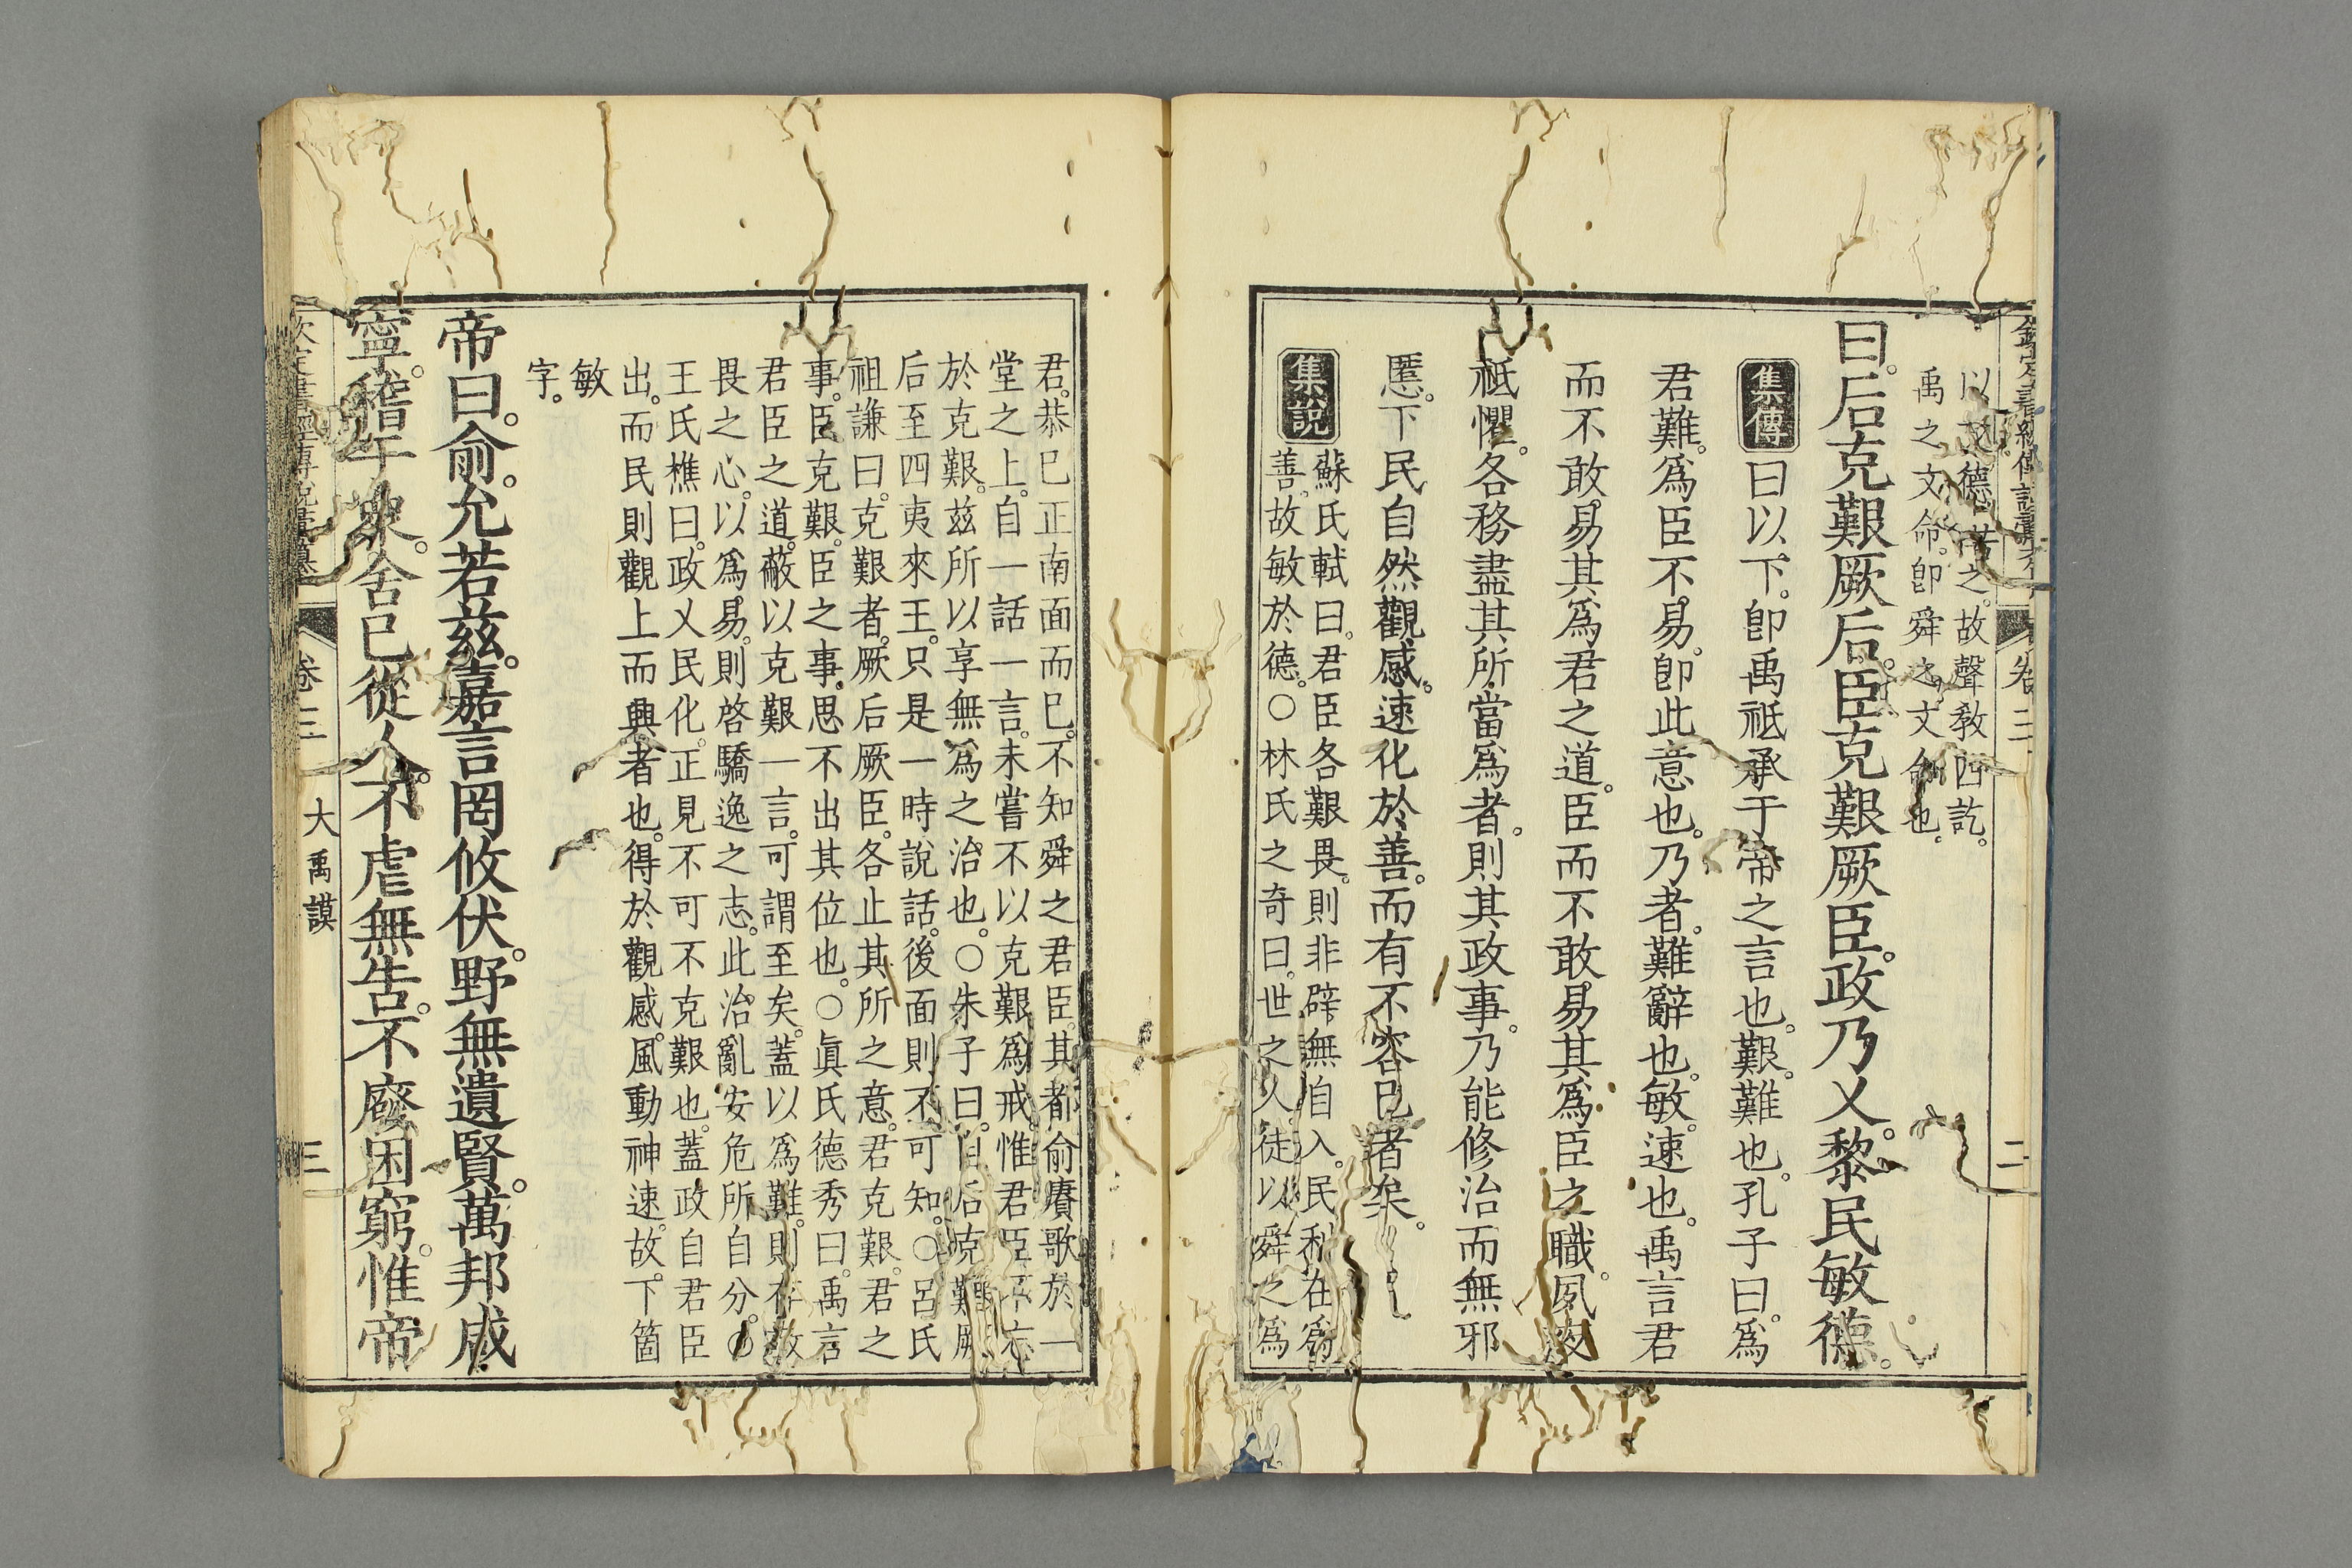 以文德言之。故聲教四訖。
禹之文命。卽舜之文命也。
曰。后克艱厥后。臣克艱厥臣。政乃乂。黎民敏德。
集傳
曰以下。卽禹祗承于帝之言也。艱。難也。孔子曰。爲
君難。爲臣不易。卽此意也。乃者。難辭也。敏。速也。禹言君
而不敢易其爲君之道。臣而不敢易其爲臣之職。夙夜
祗懼。各務盡其所當爲者。則其政事。乃能修治而無邪
慝。下民自然觀感。速化於善。而有不容已者矣。
集說
蘇氏軾曰。君臣各艱畏。則非辟無自入。民利在爲
善。故敏於德。○林氏之奇曰。世之人。徒以舜之爲
二
君。恭己正南面而已。不知舜之君臣。其都俞賡歌於一
堂之上。自一話一言。未嘗不以克艱爲戒。惟君臣不忘
於克艱。茲所以享無爲之治也。○朱子曰。自后克艱厥
后至四夷來王。只是一時說話。後面則不可知。○呂氏
祖謙曰。克艱者。厥后厥臣。各止其所之意。君克艱。君之
事。臣克艱。臣之事。思不出其位也。○眞氏德秀曰。禹言
君臣之道。蔽以克艱一言。可謂至矣。蓋以爲難。則存敬
畏之心。以爲易。則啓驕逸之志。此治亂安危所自分。○
王氏樵曰。政乂民化。正見不可不克艱也。蓋政自君臣
出。而民則觀上而興者也。得於觀感。風動神速。故下箇
敏
字。
帝曰。俞。允若茲。嘉言罔攸伏。野無遺賢。萬邦咸
寧。稽于衆。舍己從人。不虐無告。不廢困窮。惟帝
卷三 大禹謨 三